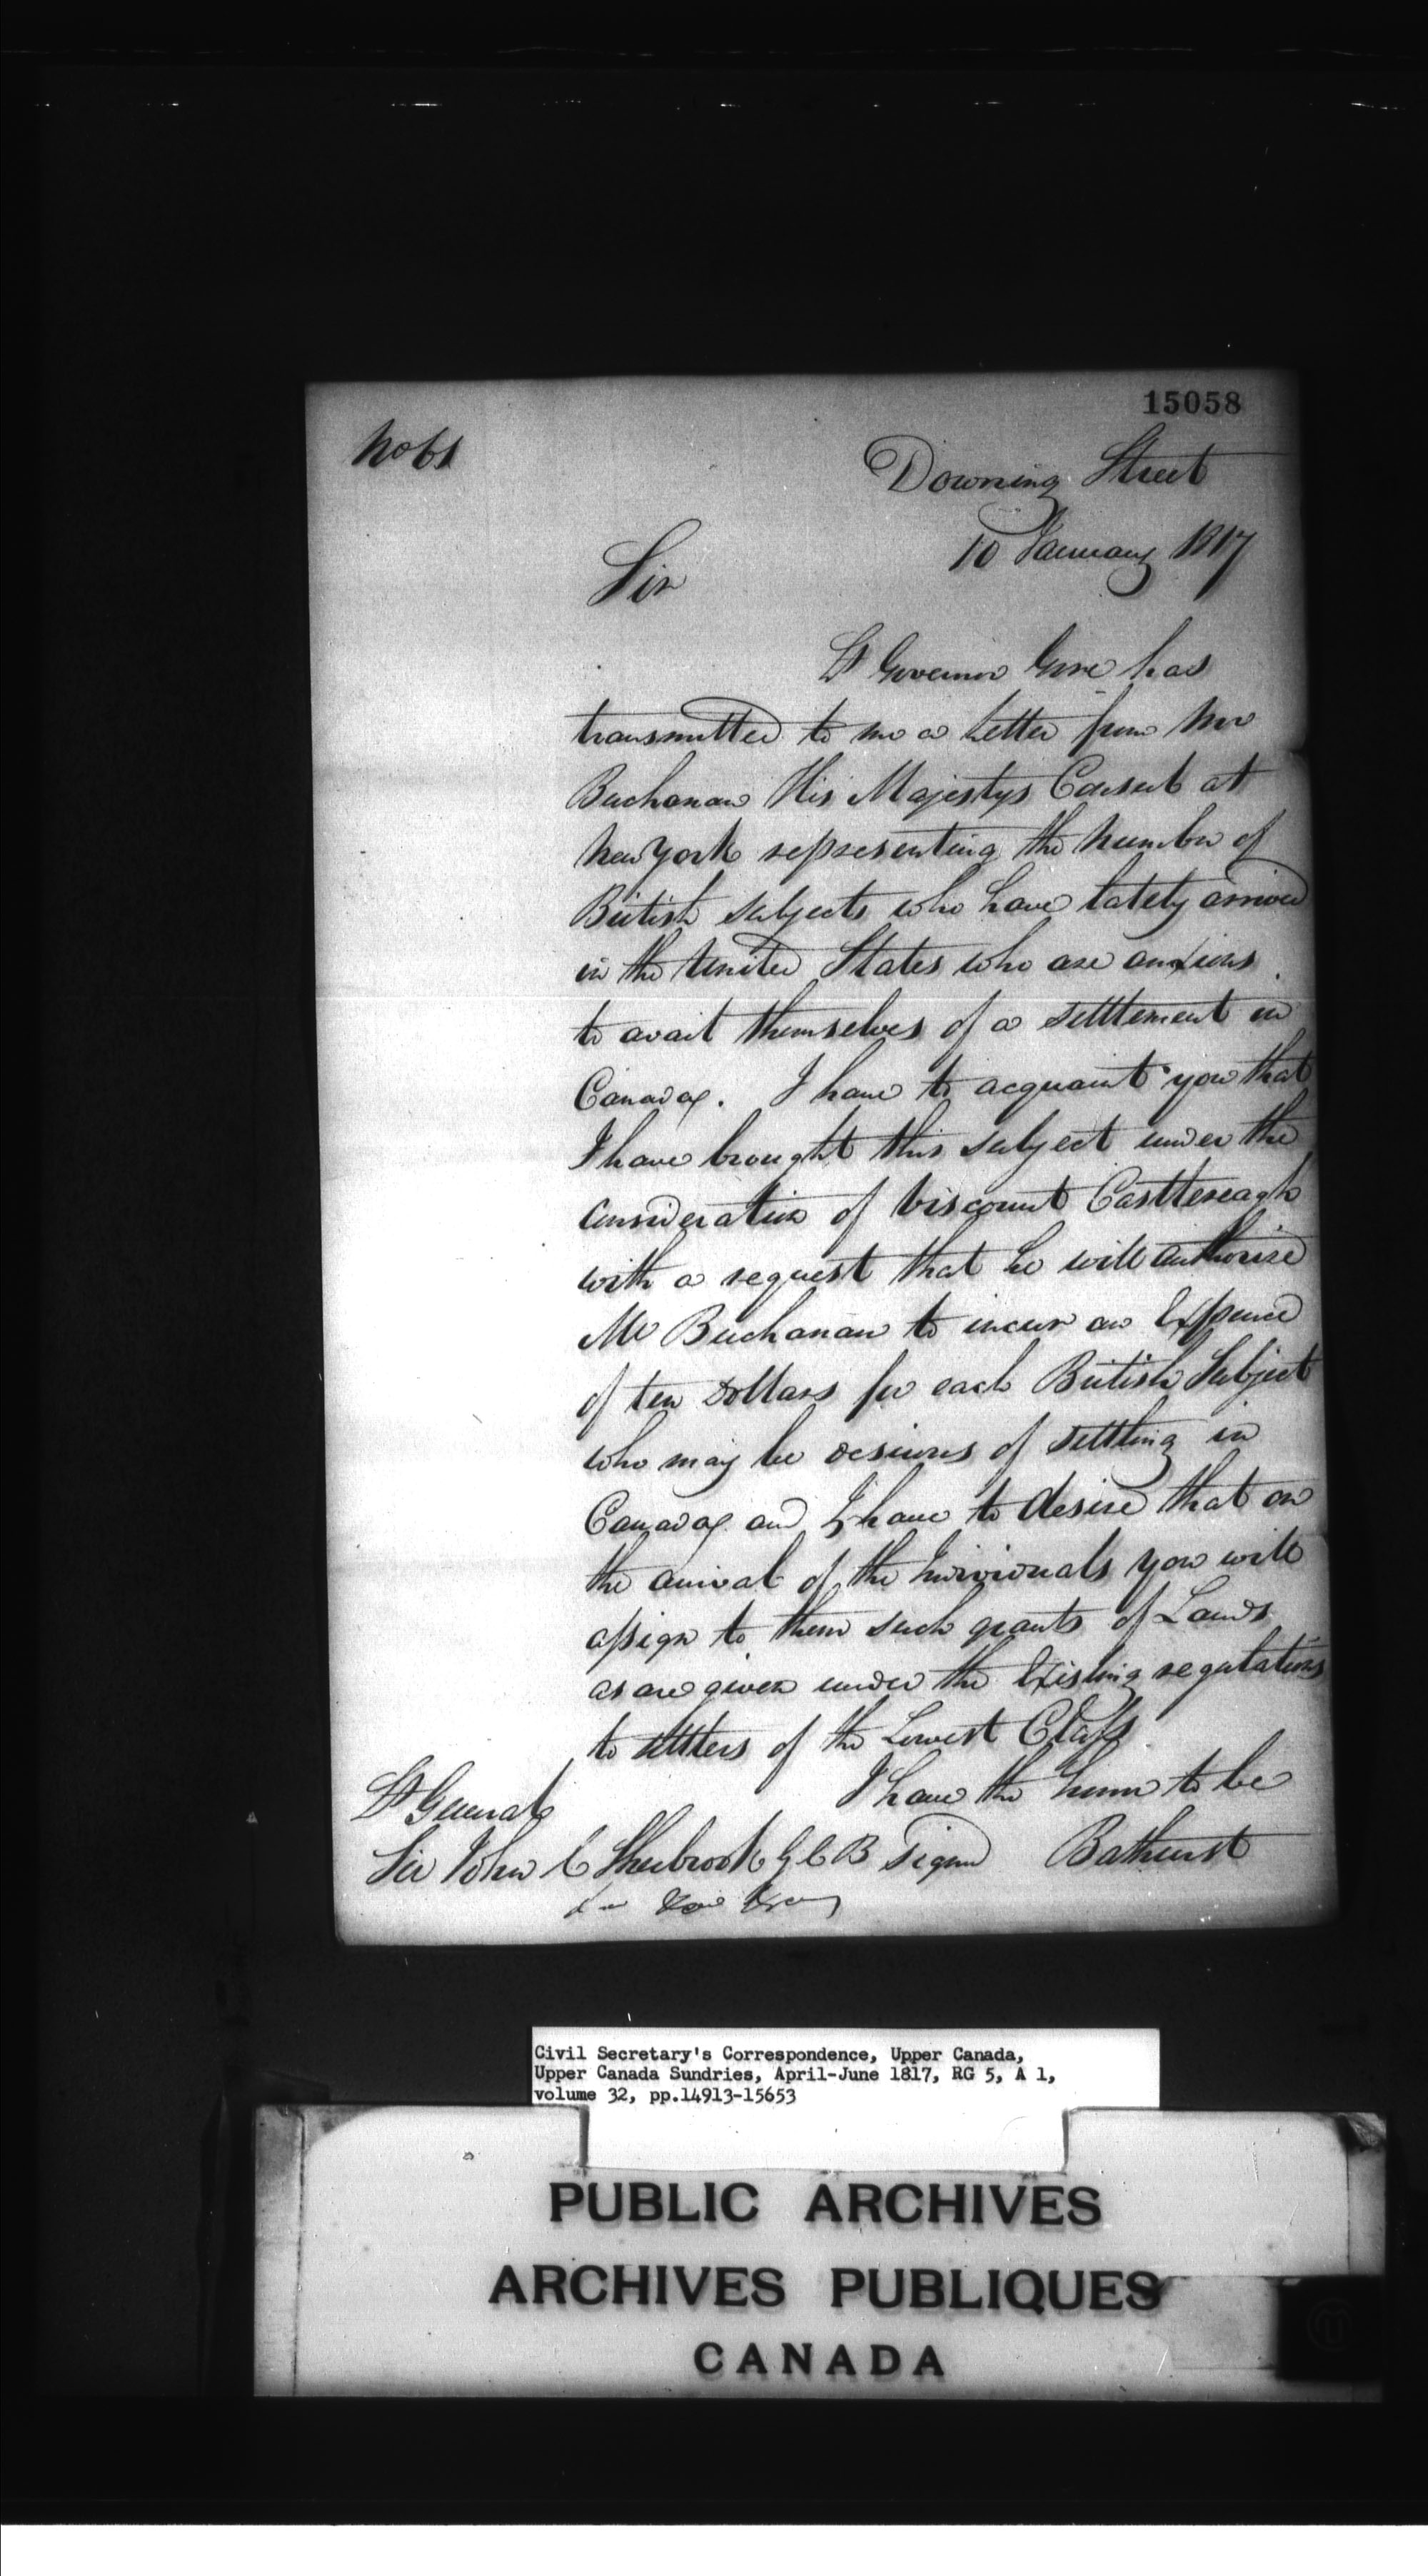 15058
No 61
Downing Street
10 January 1817
Sir
Lt Governor Gore has
transmitted to me a Letter from Mr
Buchanan His Majestys Consul at
New York representing the Number of
British subjects who have lately arrived
in the United States who are anxious
to avail themselves of a settlement in
Canada. I have to acquaint you that
I have brought this subject under the
Consideration of Viscount Castlereagh
with a request that he will authorise
Mr Buchanan to incur an Expence
of ten Dollars for each British Subject
who may be desirous of settling in
Canada and I have to desire that on
the arrival of the Individuals you will
assign to them such grants of Lands
as are given under the Existing regulations
to settlers of the Lowest Class
I have the honor to be
Lt General
Sir John C Sherbrook G C B Signed Bathurst
Civil Secretary's Correspondence, Upper Canada,
Upper Canada Sundries, April-June 1817, RG 5, A 1,
volume 32, pp.14913-15653
PUBLIC ARCHIVES
ARCHIVES PUBLIQUES
CANADA